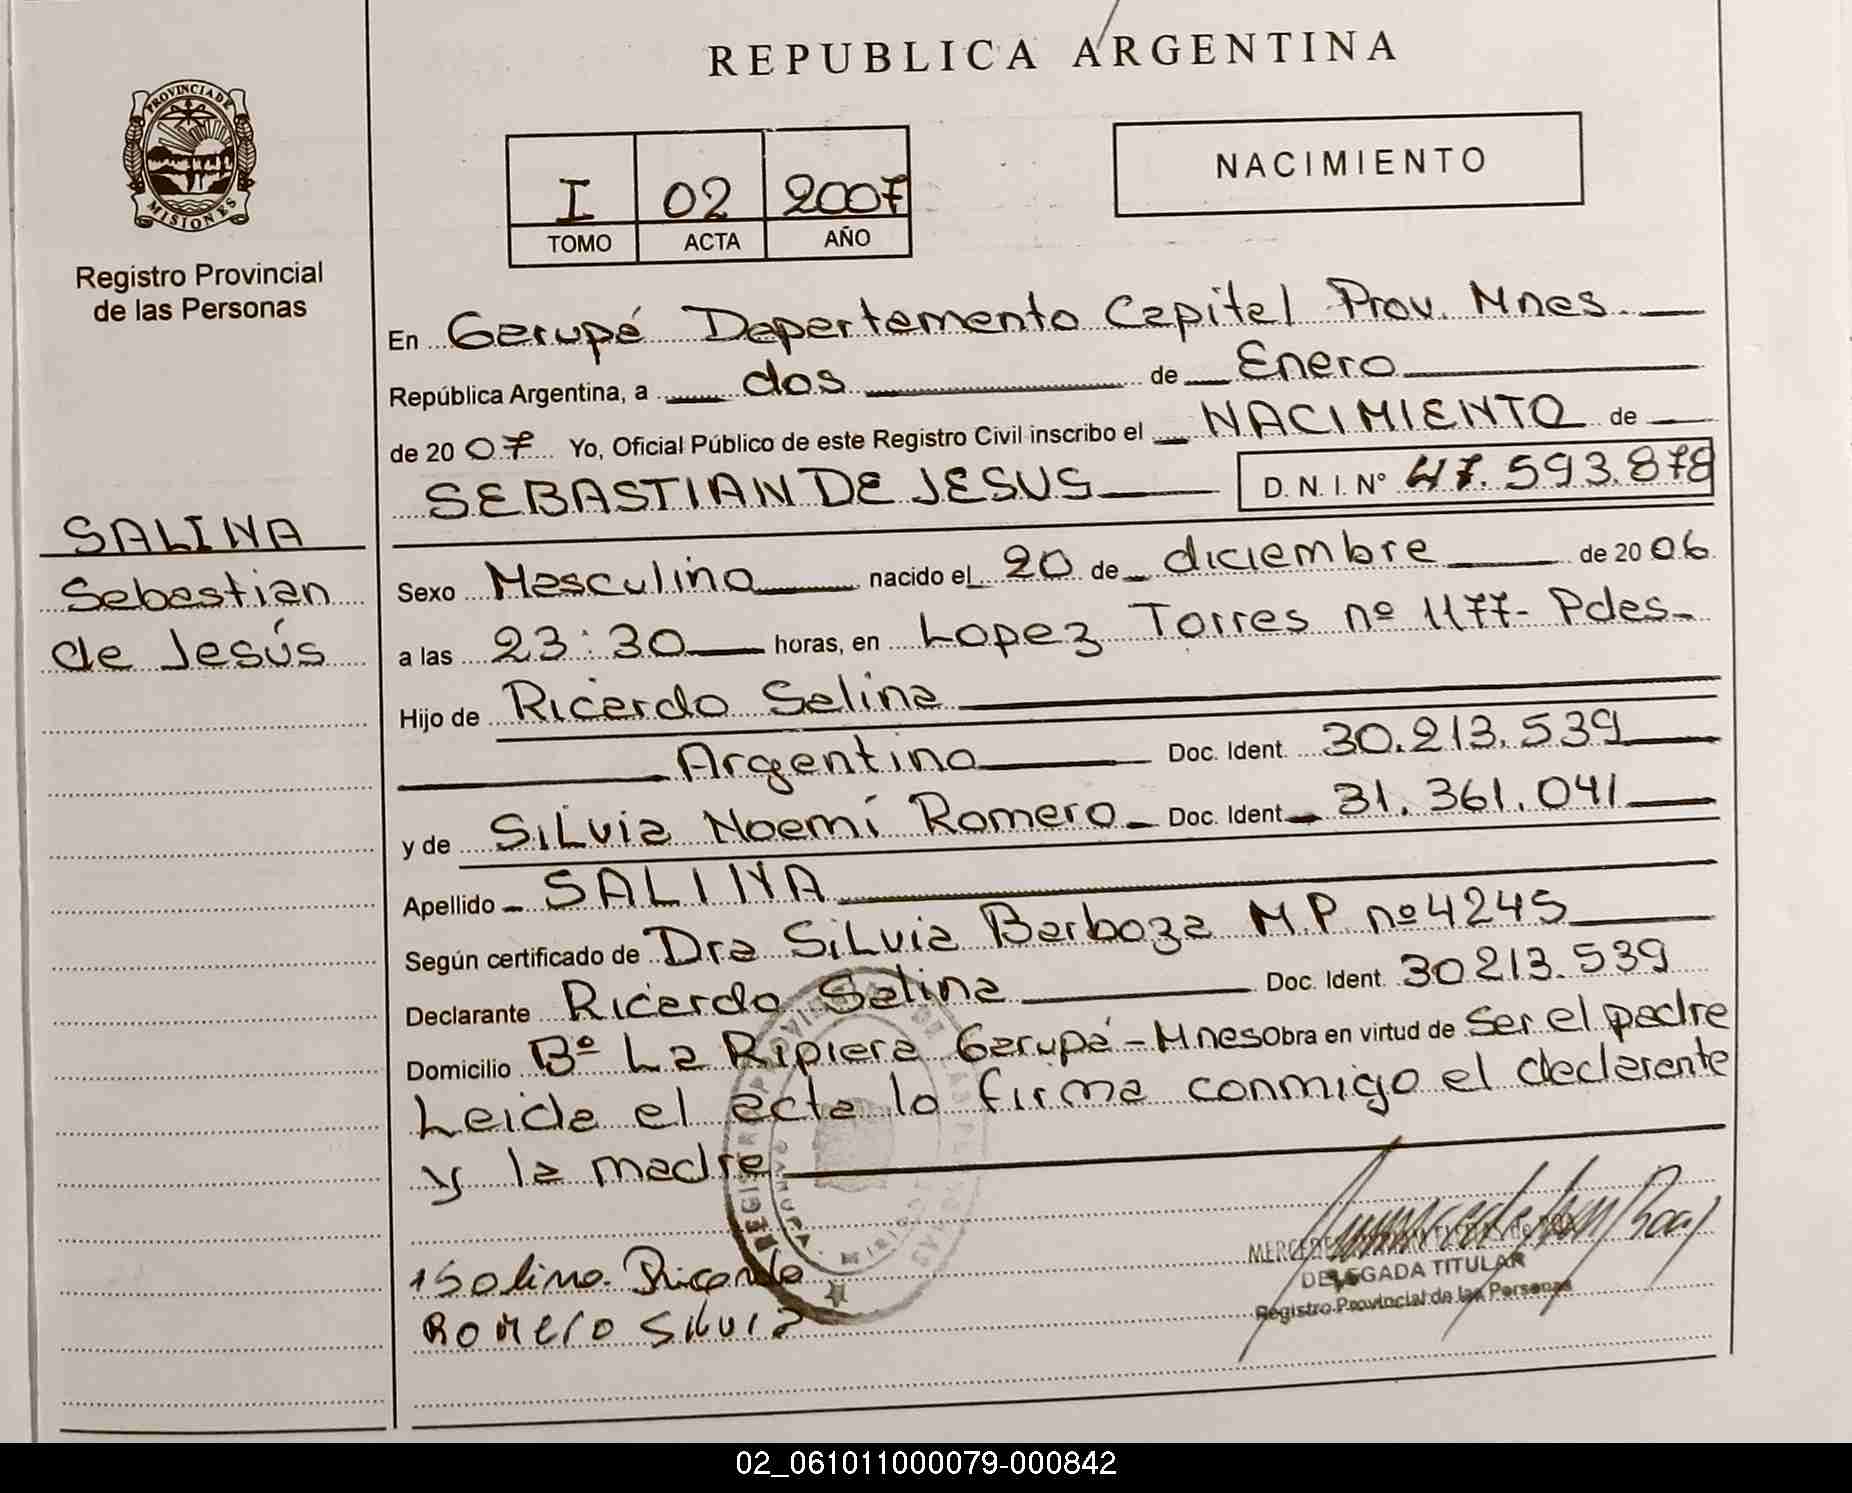 REPUBLICA ARGENTINA
PROVINCIA DE
MISIONES
Registro Provincial
de las Personas
I 02 2007
TOMO ACTA AÑO
NACIMIENTO
En Garupá Departamento Capital Prov. Mnes
República Argentina, a dos de Enero
de 2007 Yo, Oficial Público de este Registro Civil inscribo el NACIMIENTO de
SEBASTIAN DE JESUS D. N. I. Nº 47.593.878
SALINA
Sebastian
de Jesús
Sexo Masculino nacido el 20 de diciembre de 2006
a las 23:30 horas, en Lopez Torres nº 1177- Pdas-
Hijo de Ricardo Salina
Argentino Doc. Ident. 30.213.539
y de Silvia Noemí Romero Doc. Ident. 31.361.041
Apellido SALINA
Según certificado de Dra Silvia Barboza M.P. nº 4245
Declarante Ricardo Salina Doc. Ident. 30213.539
Domicilio Bº La Ripiera Garupá - Mnes Obra en virtud de Ser el padre
Leida el acta la firma conmigo el declarante
y la madre
Salina Ricardo
Romero Silvia
DELEGADA TITULAR
Registro Provincial de las Personas
02_061011000079-000842